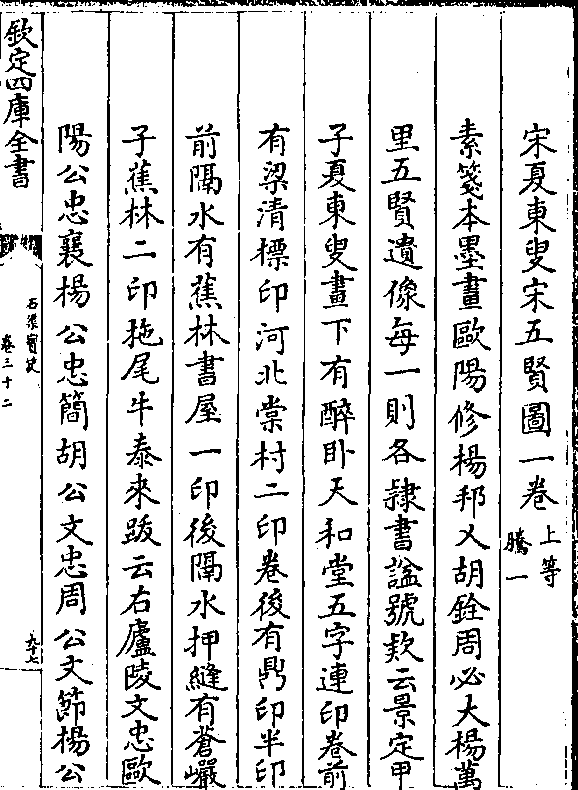 宋夏東叟宋五賢圖一卷上等
騰一
素箋本墨畫歐陽修楊邦乂胡銓周必大楊萬
里五賢遺像每一則各隷書諡號欵云景定甲
子夏東叟畫下有醉卧天和堂五字連印卷前
有梁清標印河北棠村二印卷後有鼎印半印
前隔水有蕉林書屋一印後隔水押縫有蒼巖
子蕉林二印拖尾牛泰來跋云右廬陵文忠歐
陽公忠襄楊公忠簡胡公文忠周公文節楊公
欽定四庫全書
石渠寶笈
卷三十二
九十七